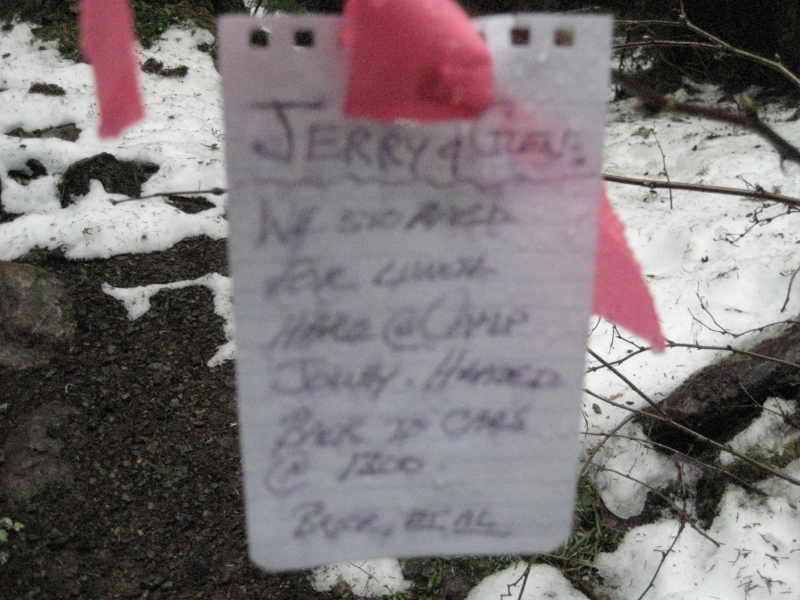 JERRY & GLEN:
WE STOPPED
FOR LUNCH
HERE @ CAMP
JOLLEY. HEADED
BACK TO CARS
@ 1200.
ET AL